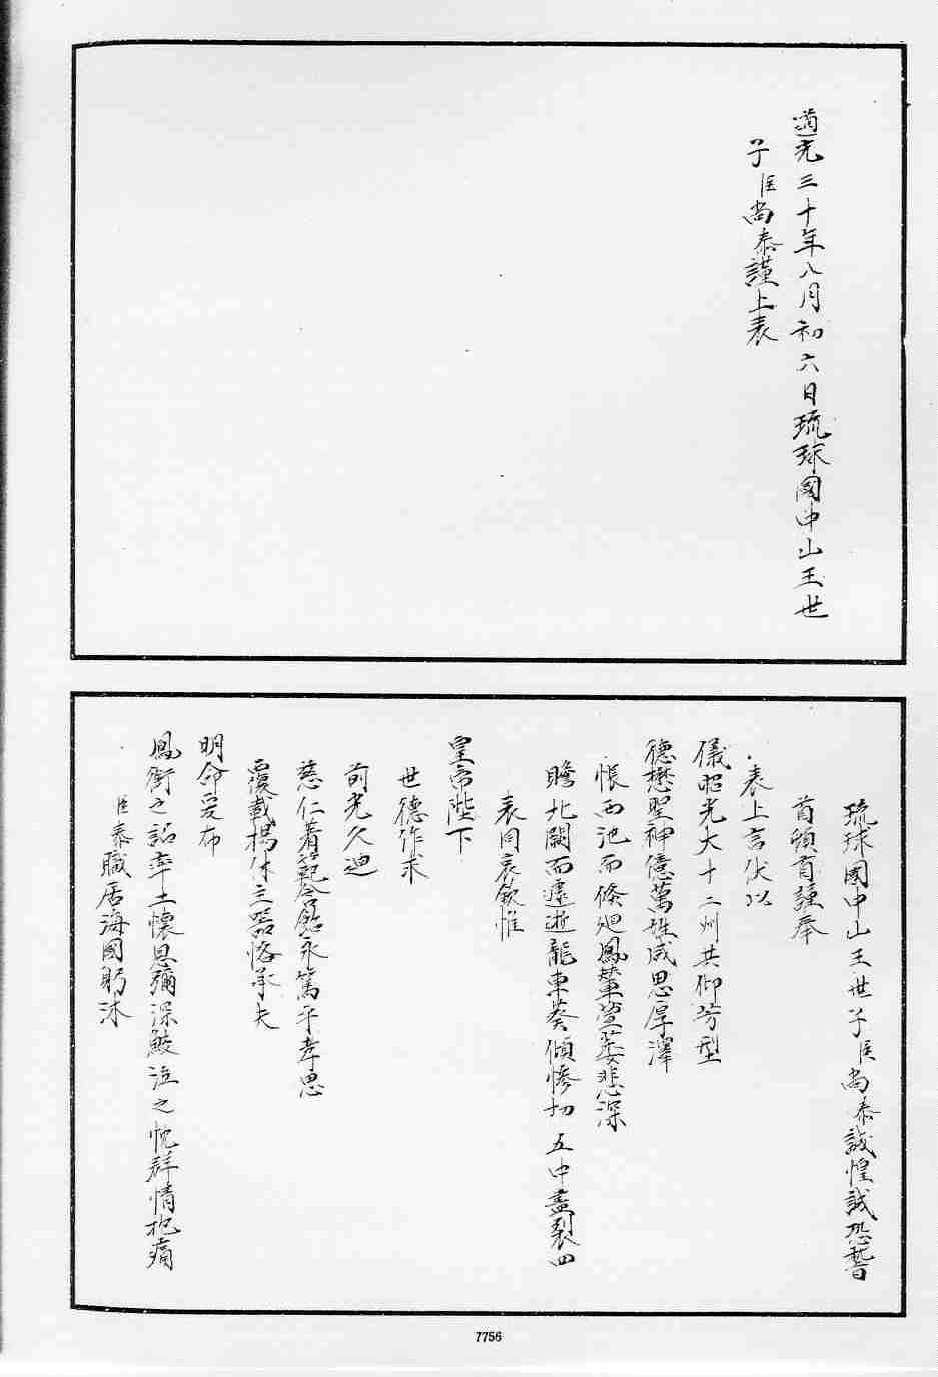 道光三十年八月初六日琉球國中山王世
子臣尚泰謹上表
琉球國中山王世子臣尚泰誠惶誠恐稽
首頓首謹奉
表上言伏以
儀昭光大十二州共仰芳型
德懋聖神億萬姓咸思厚澤
悵西池而倏𢌞鳳輦萱萎悲深
瞻北闕而遽逝龍車葵傾慘切五中盡裂四
表同哀欽惟
皇帝陛下
世德作求
前光久迪
慈仁著範含飴永篤乎孝思
覆載揚休主器恪承夫
明命爰布
鳳銜之詔率土懷恩彌深鮫泣之忱群情抱痛
臣泰職居海國躬沐
7756